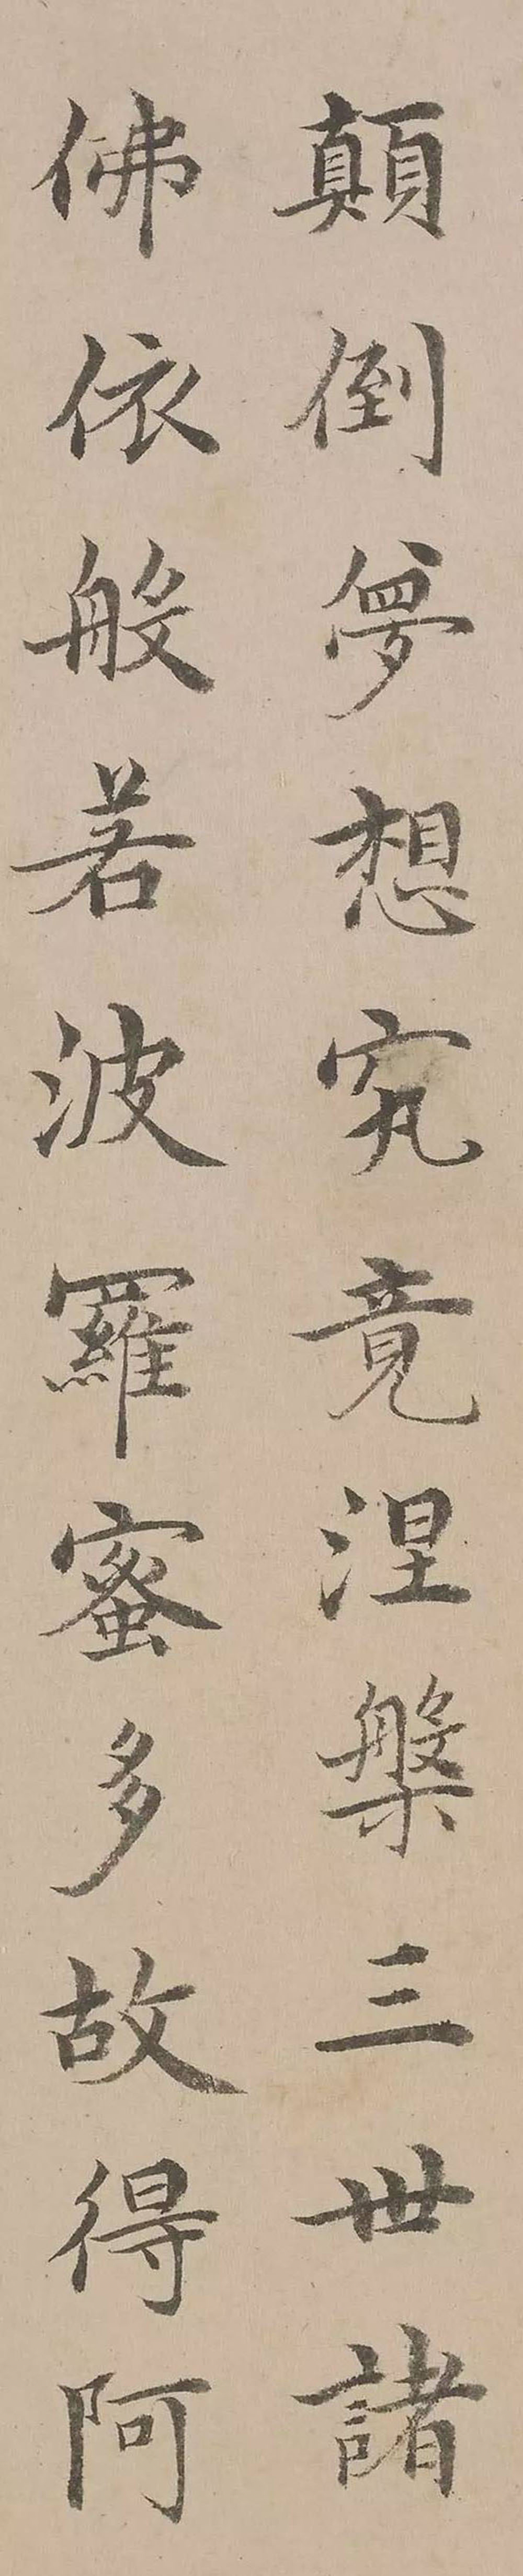 顛倒夢想究竟涅槃三世諸
佛依般若波羅蜜多故得阿